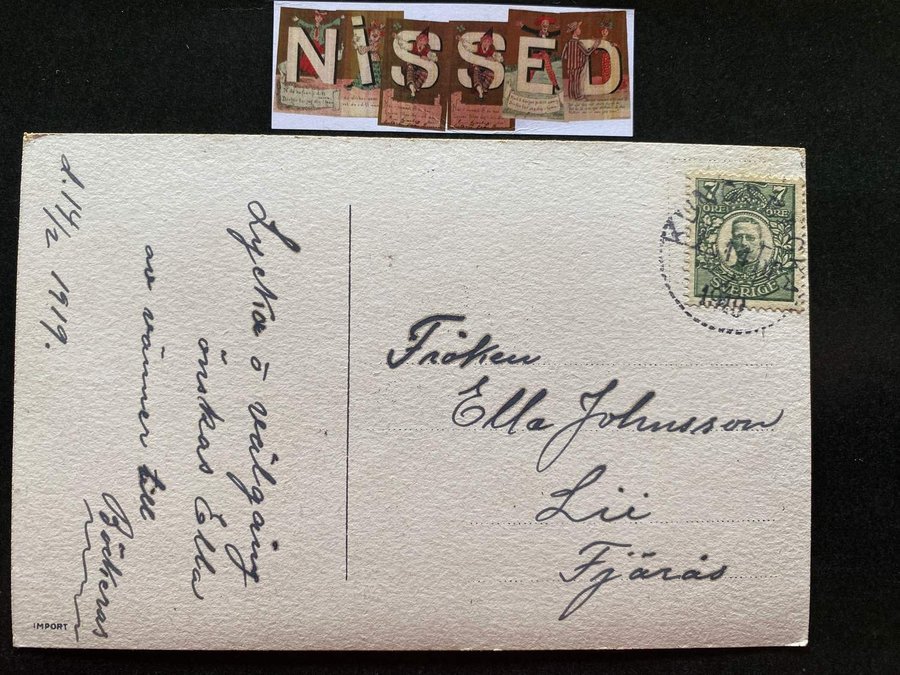 NISSED
7 7
ÖRE ÖRE
SVERIGE
d. 14/2 1919.
Lycka o välgång
önskas Ella
av vänner till
Fröken
Ella Johnsson
Lii
Fjärås
IMPORT